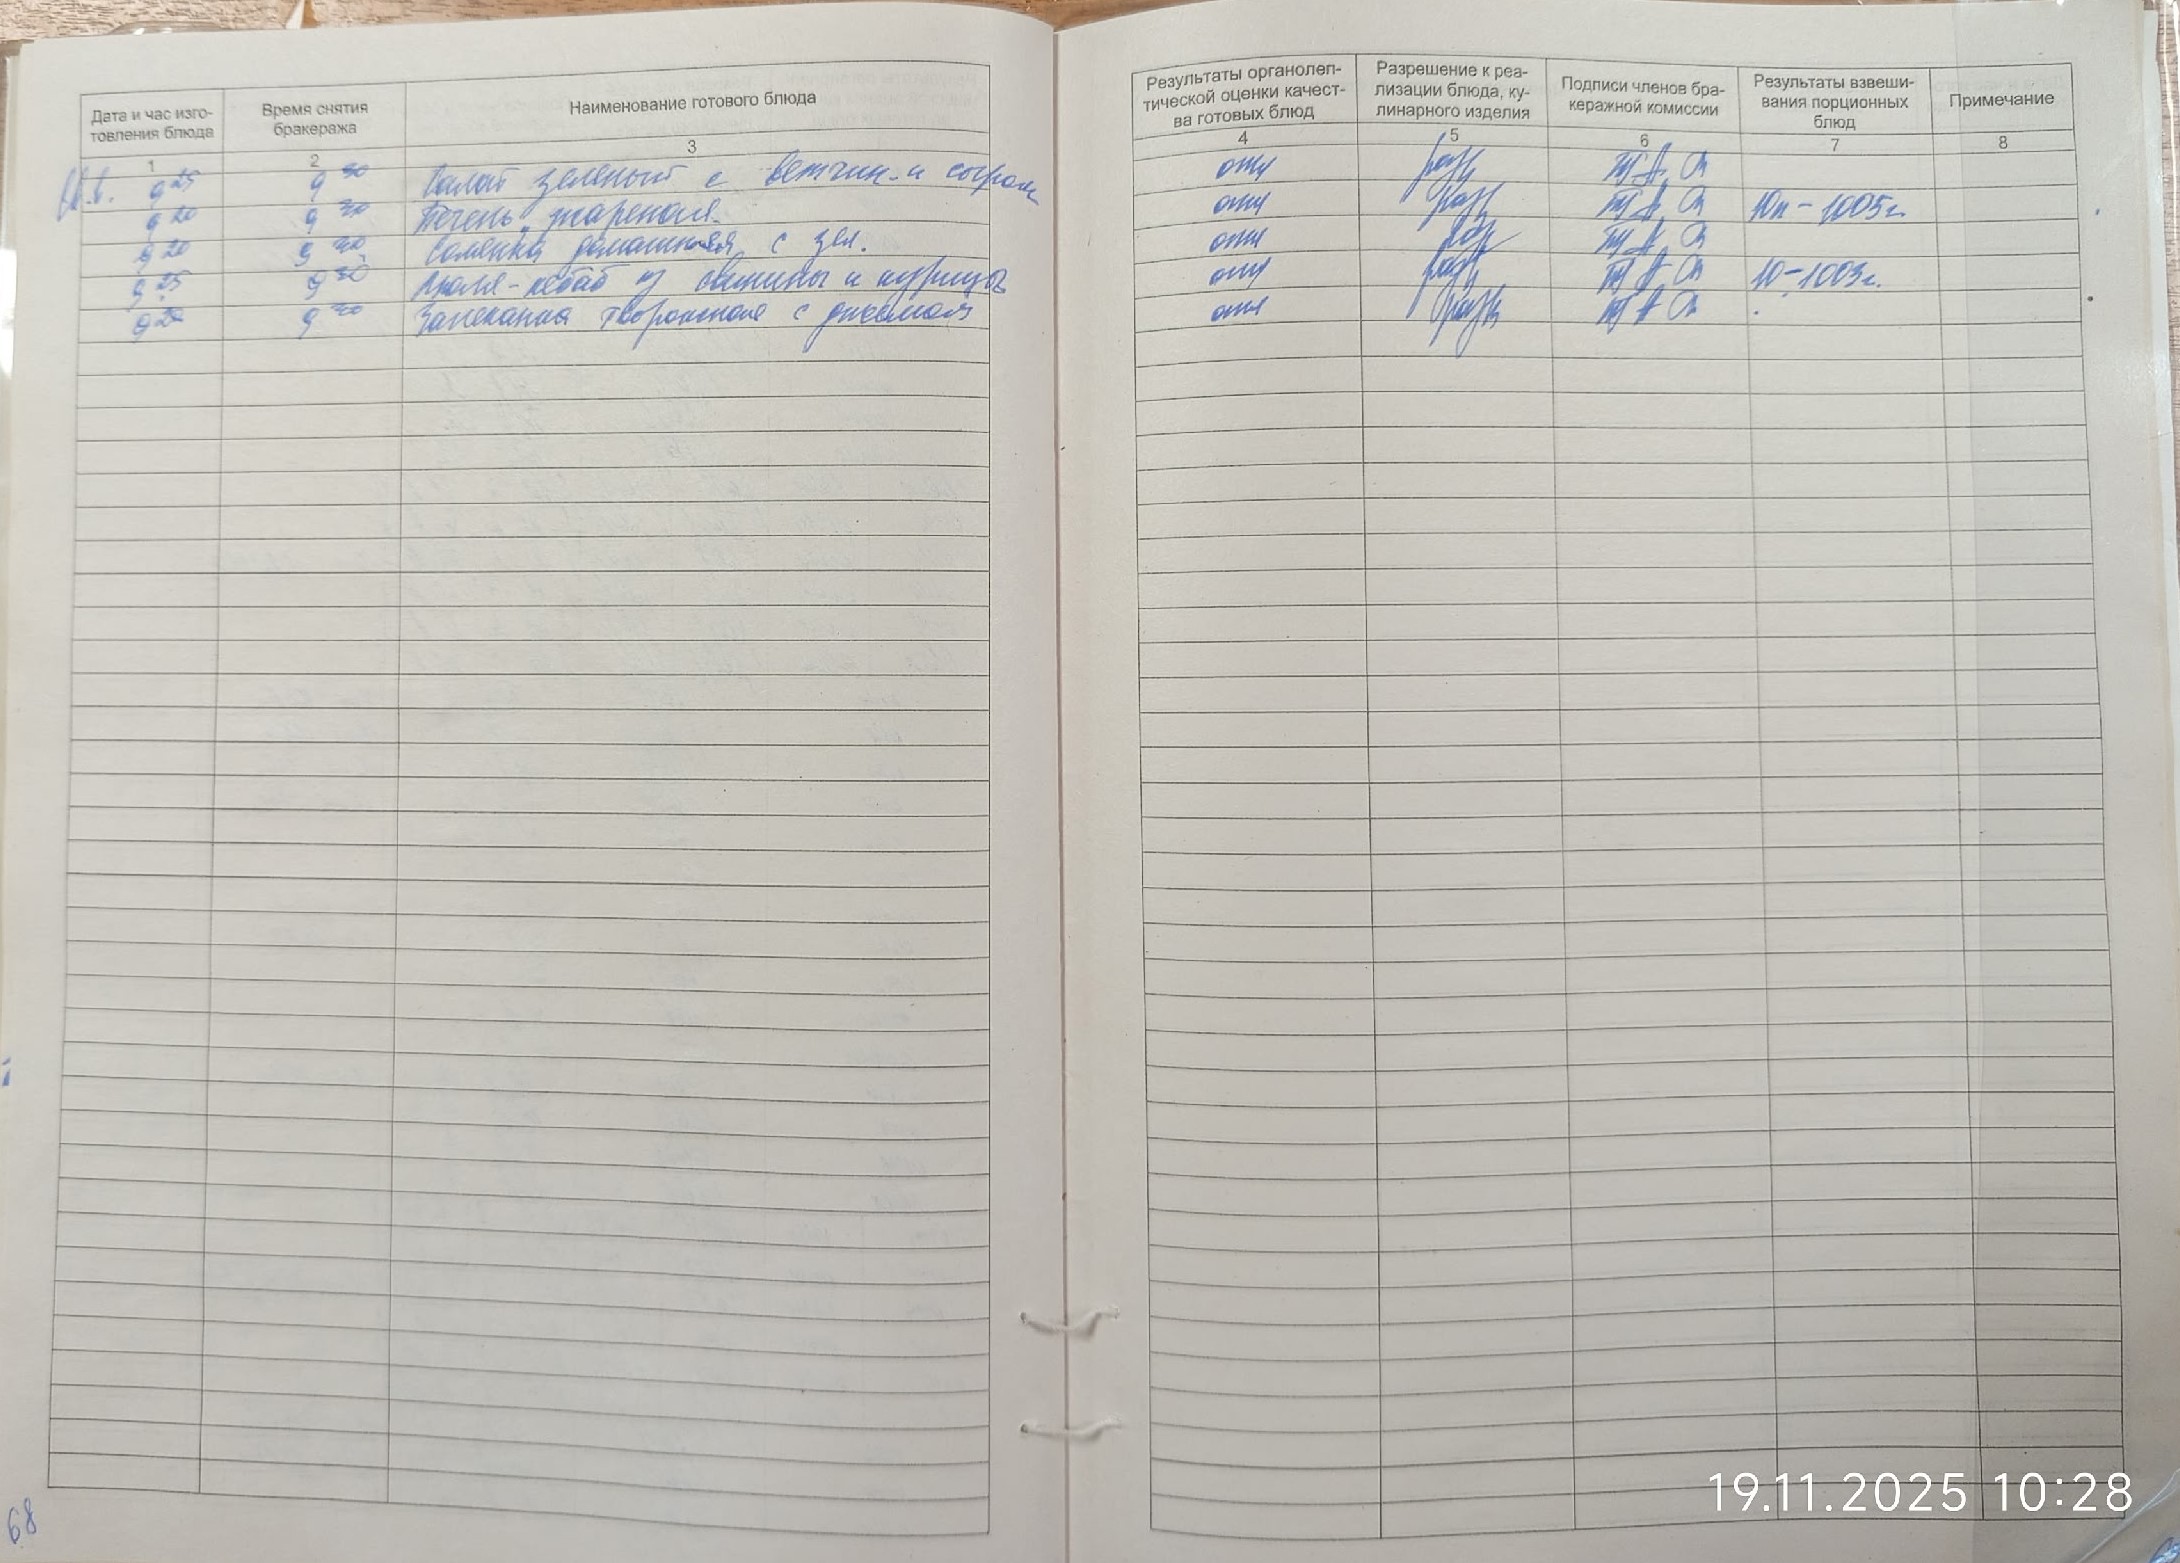 Дата и час изго-
товления блюда
Время снятия
бракеража
Наименование готового блюда
1
2
3
9 25
9 30
Салат зеленый с ветчин. и сыром
9 20
9 30
Печень жареная
9 20
9 30
Солянка домашняя с зел.
9 25
9 30
Люля-кебаб из свинины и курицы
9 20
9 30
Запеканка творожная с джемом
68
Результаты органолеп-
тической оценки качест-
ва готовых блюд
Разрешение к реа-
лизации блюда, ку-
линарного изделия
Подписи членов бра-
керажной комиссии
Результаты взвеши-
вания порционных
блюд
Примечание
4
5
6
7
8
отл
разр
отл
разр
10п - 1005г.
отл
разр
отл
разр
10 - 1003г.
отл
разр
19.11.2025 10:28